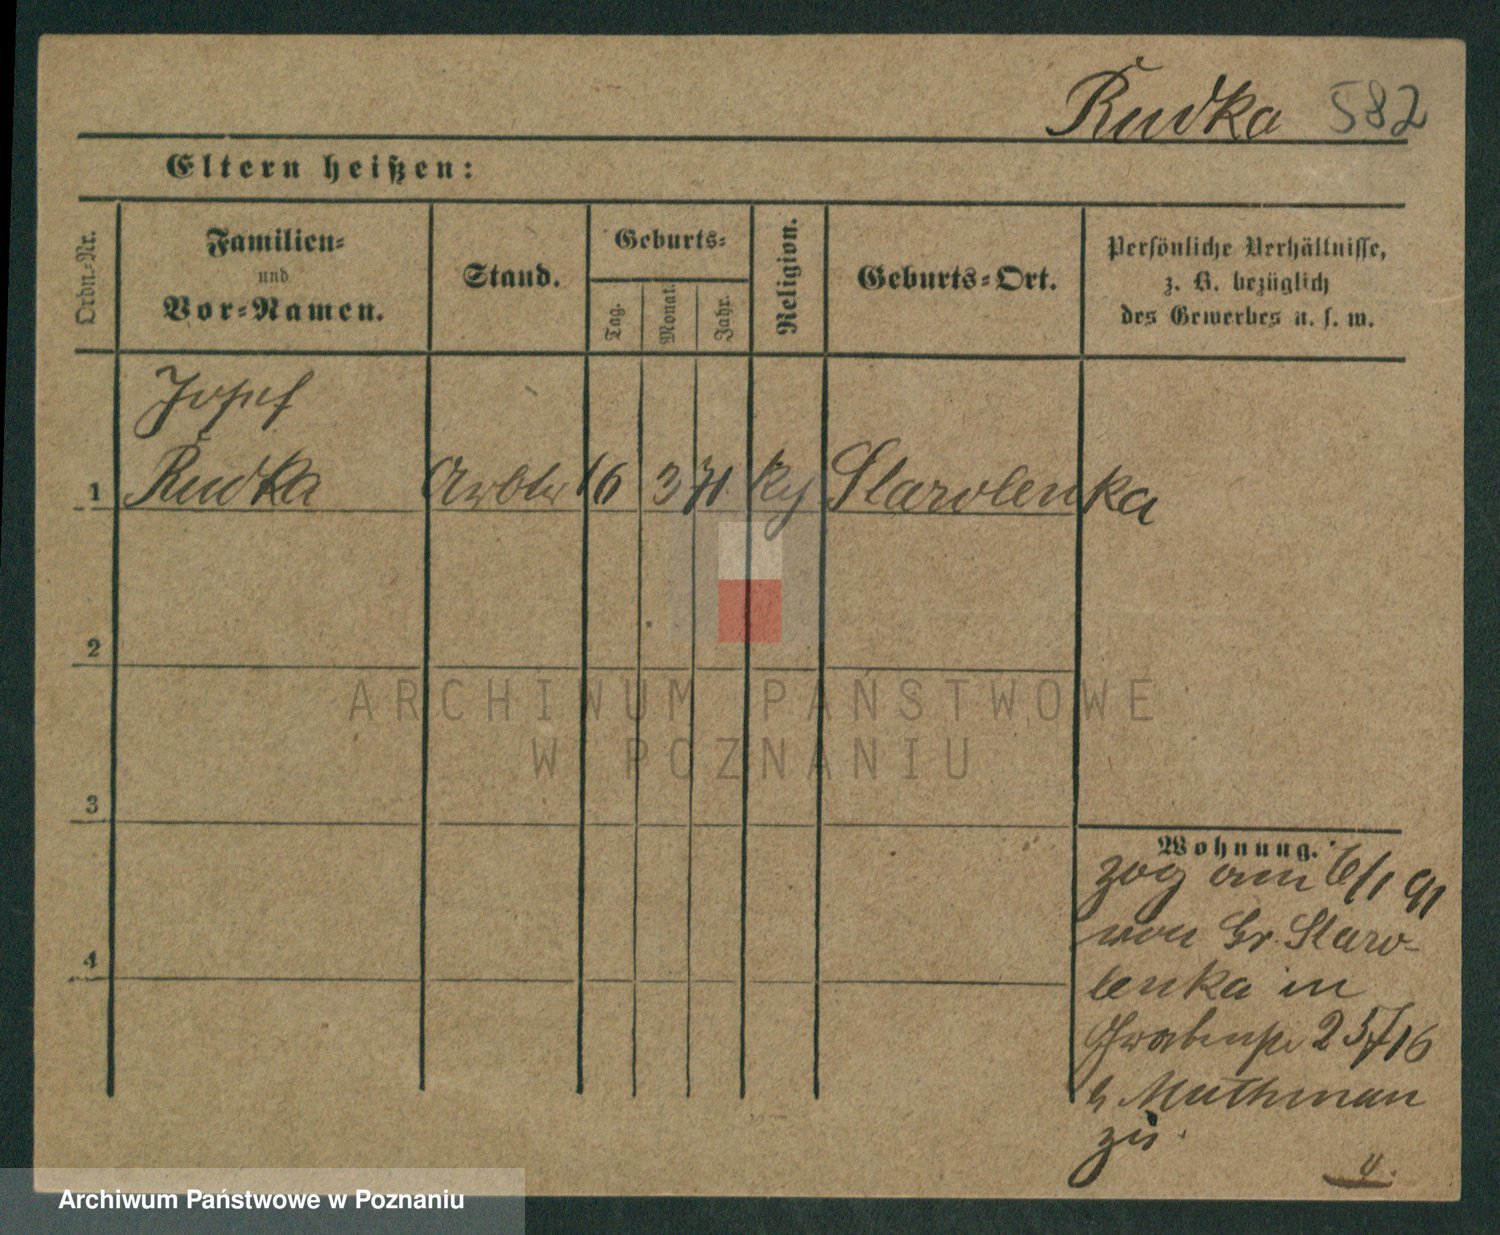 Rudka 582
Eltern heißen:
Ordn.-Nr.
Familien-
und
Vor-Namen.
Stand.
Geburts-
Tag.
Monat.
Jahr.
Religion.
Geburts-Ort.
Persönliche Verhältnisse,
z. B. bezüglich
des Gewerbes u. s. w.
Josef
1 Rudka Arbtr 16 3 71 kj Starolenka
2
ARCHIWUM PAŃSTWOWE
W POZNANIU
3
Wohnung.
zog am 6/1 91
von Gr. Staro-
4
lenka in
25/16
Muthman
zu.
Archiwum Państwowe w Poznaniu